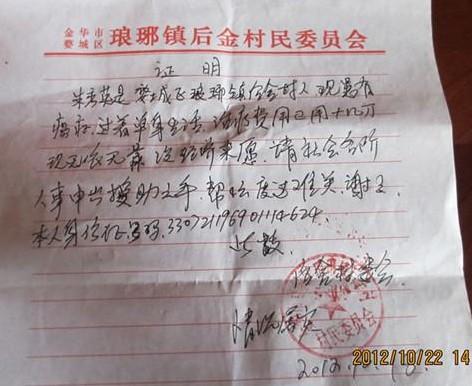 金华市
婺城区 琅琊镇后金村民委员会
证明
是婺城区琅琊镇后金村人 现患有
癌症,过着单身生活,治疗费用已用十几万
现无依无靠 没经济来源,请社会各界
人事申出援助之手,帮助度过难关,谢谢
本人身份证号码,
此致
后金村委会
情况属实
村民委员会
2012/10/22 14